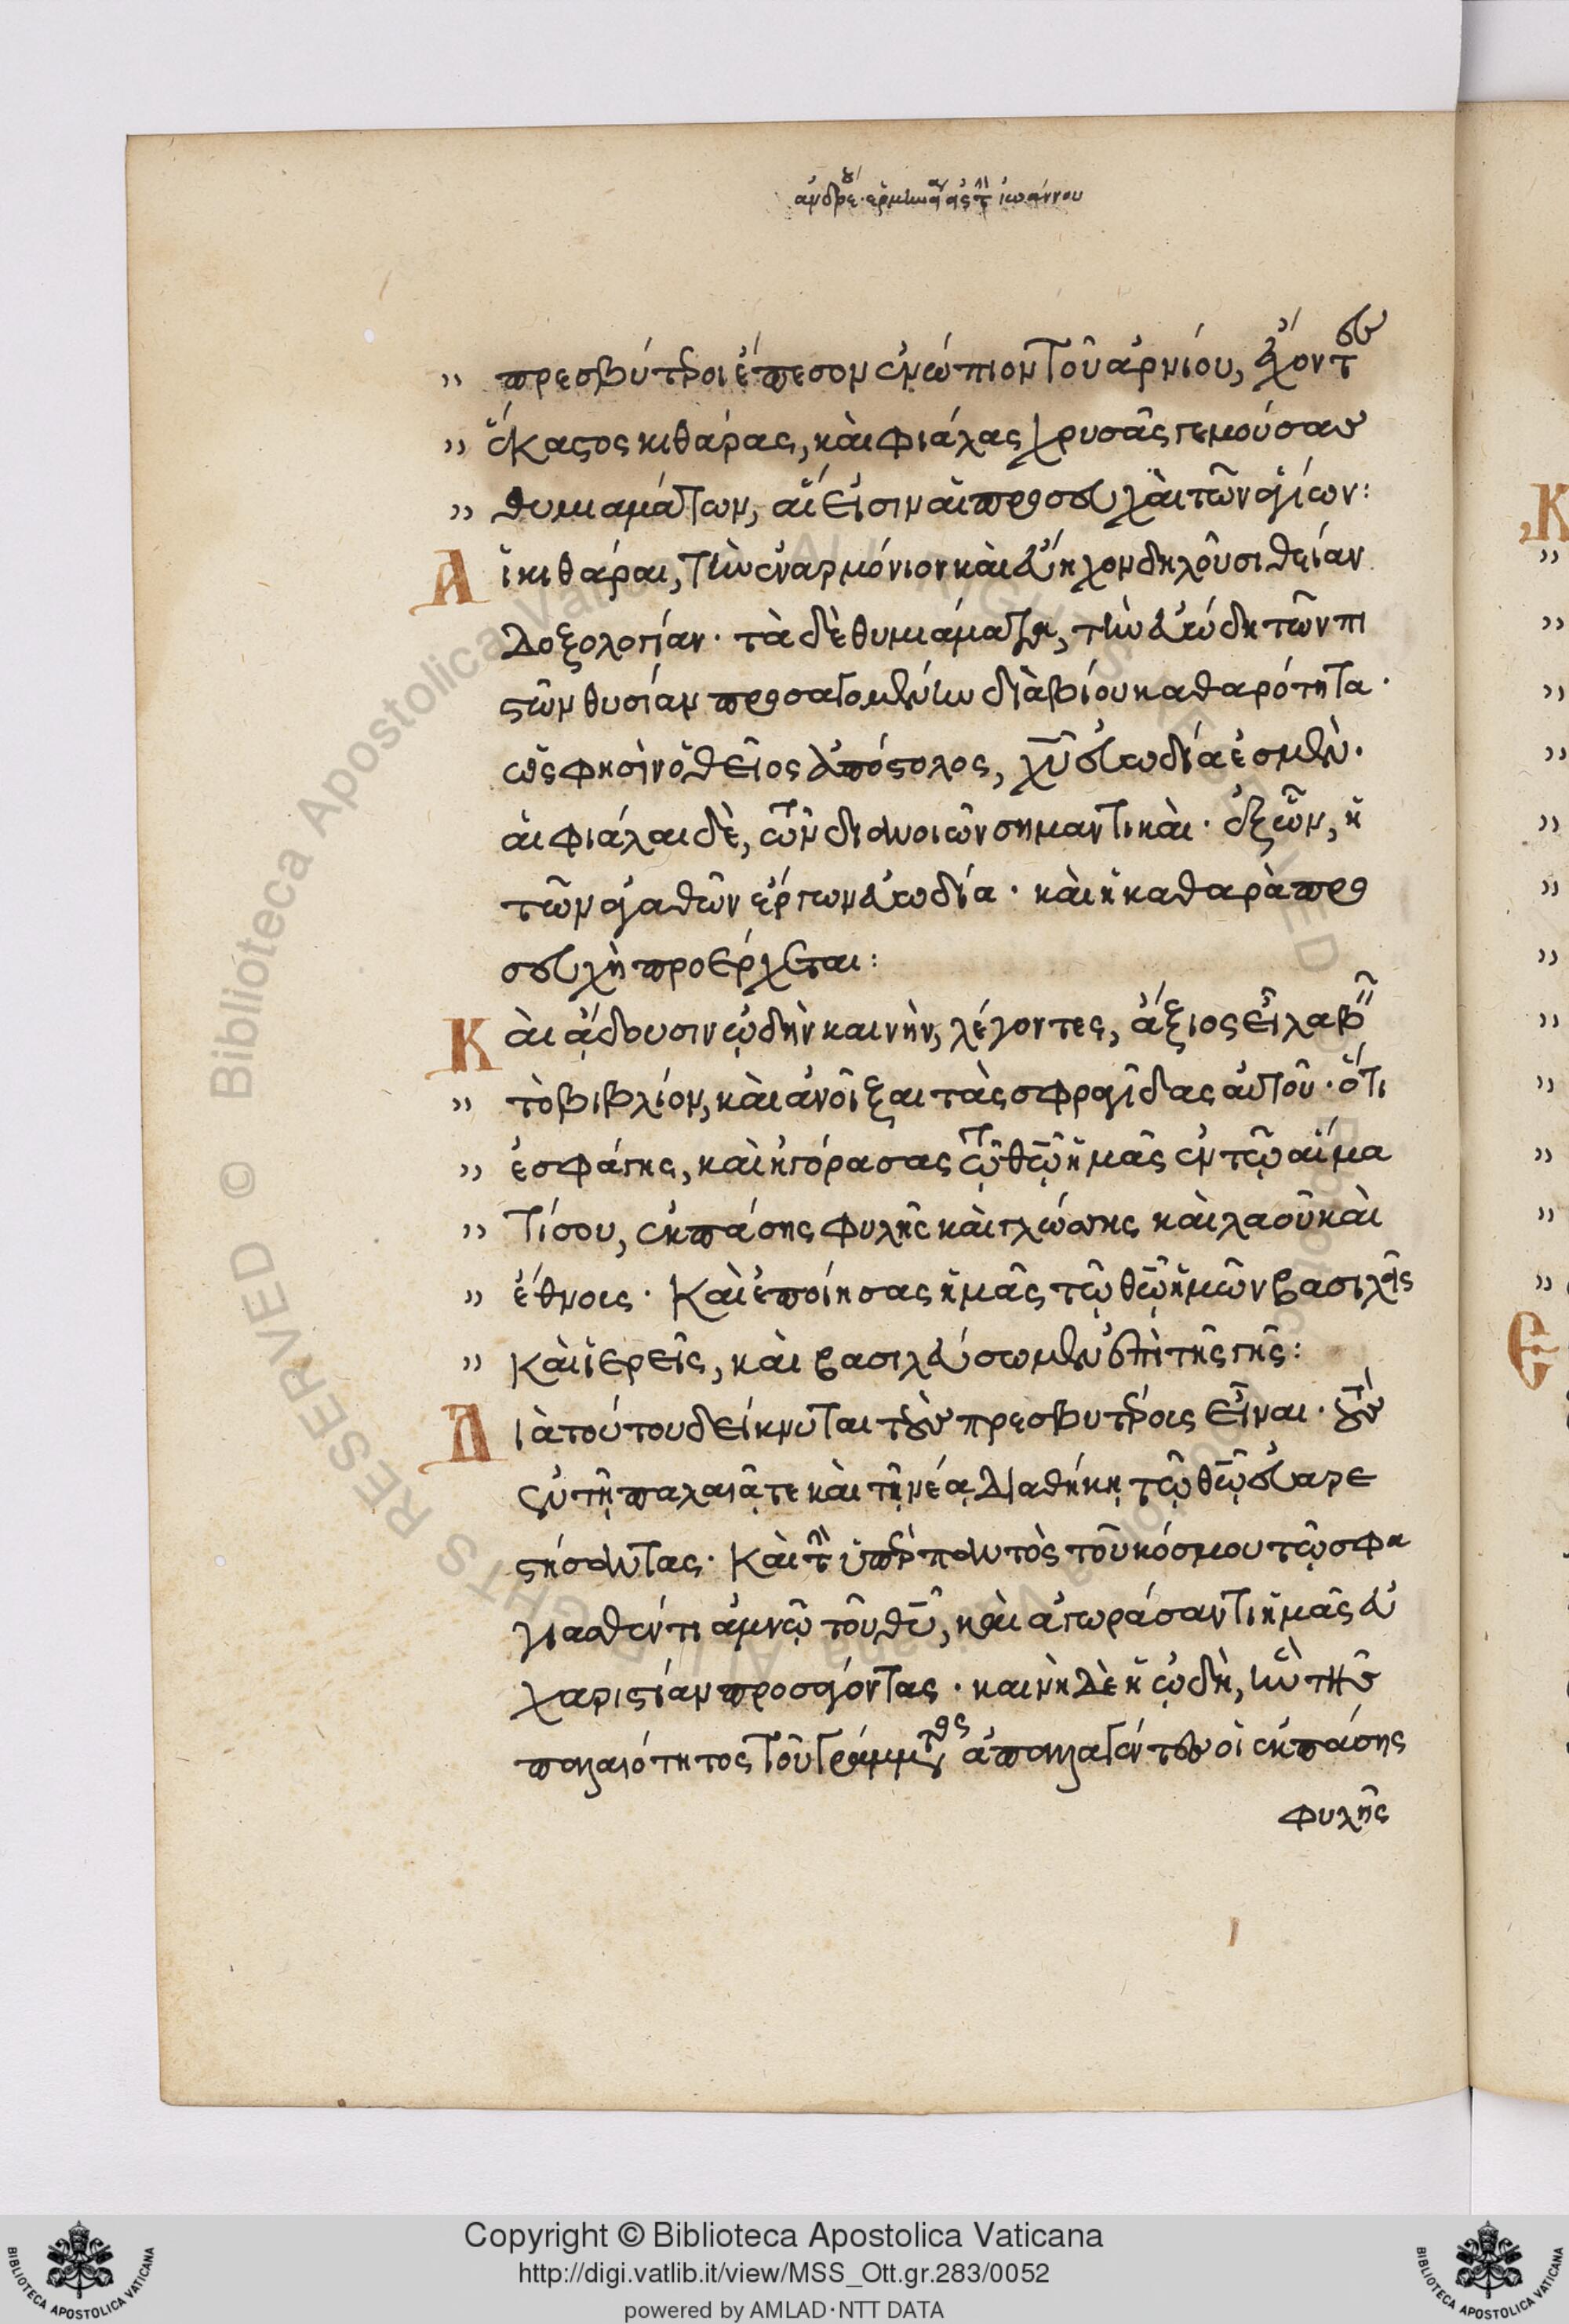 ἀνδρέου ἑρμηνεία εἰς τὴν ἰωάννου
» πρεσβύτεροι ἔπεσον ἐνώπιον τοῦ ἀρνίου, ἔχοντες
» ἕκαστος κιθάρας, καὶ φιάλας χρυσᾶς γεμούσας
» θυμιαμάτων, αἵ εἰσιν αἱ προσευχαὶ τῶν ἁγίων:
Αἱ κιθάραι, τὴν ἐναρμόνιον καὶ εὔηχον δηλοῦσι θείαν
δοξολογίαν· τὰ δὲ θυμιάματα, τὴν εὐώδη τῶν πι
στῶν θυσίαν προσαγομένην διὰ βίου καθαρότητα·
ὥς φησὶν ὁ θεῖος ἀπόστολος, χυ εὐωδία ἐσμέν·
αἱ φιάλαι δὲ, τῶν διανοιῶν σημαντικαὶ· ἐξ ὧν, ἡ
τῶν ἀγαθῶν ἔργων εὐωδία· καὶ ἡ καθαρὰ προ
σευχὴ προέρχεται:
Καὶ ᾄδουσιν ᾠδὴν καινὴν, λέγοντες, ἄξιος εἶ λαβεῖν
» τὸ βιβλίον, καὶ ἀνοῖξαι τὰς σφραγῖδας αὐτοῦ· ὅτι
» ἐσφάγης, καὶ ἠγόρασας τῷ θῷ ἡμᾶς ἐν τῷ αἵμα
» τί σου, ἐκ πάσης φυλῆς καὶ γλώσσης καὶ λαοῦ καὶ
» ἔθνους· Καὶ ἐποίησας ἡμᾶς τῷ θῷ ἡμῶν βασιλεῖς
» καὶ ἱερεῖς, καὶ βασιλεύσωμεν ἐπὶ τῆς γῆς:
Διὰ τούτου δείκνυται τοὺς πρεσβυτέρους εἶναι· τοὺς
ἐν τῇ παλαιᾷ τε καὶ τῇ νέᾳ διαθήκῃ τῷ θῷ εὐαρε
στήσαντας· Καὶ τὴν ὑπὲρ παντὸς τοῦ κόσμου τῷ σφα
γιασθέντι ἀμνῷ τοῦ θυ, καὶ ἀγοράσαντι ἡμᾶς εὐ
χαριστίαν προσάγοντας· καινὴ δὲ ἡ ᾠδὴ, ἣν τῆς
παλαιότητος τοῦ γράμματος ἀπαλλαγέντες οἱ ἐκ πάσης
φυλῆς
Copyright © Biblioteca Apostolica Vaticana
http://digi.vatlib.it/view/MSS_Ott.gr.283/0052
powered by AMLAD·NTT DATA